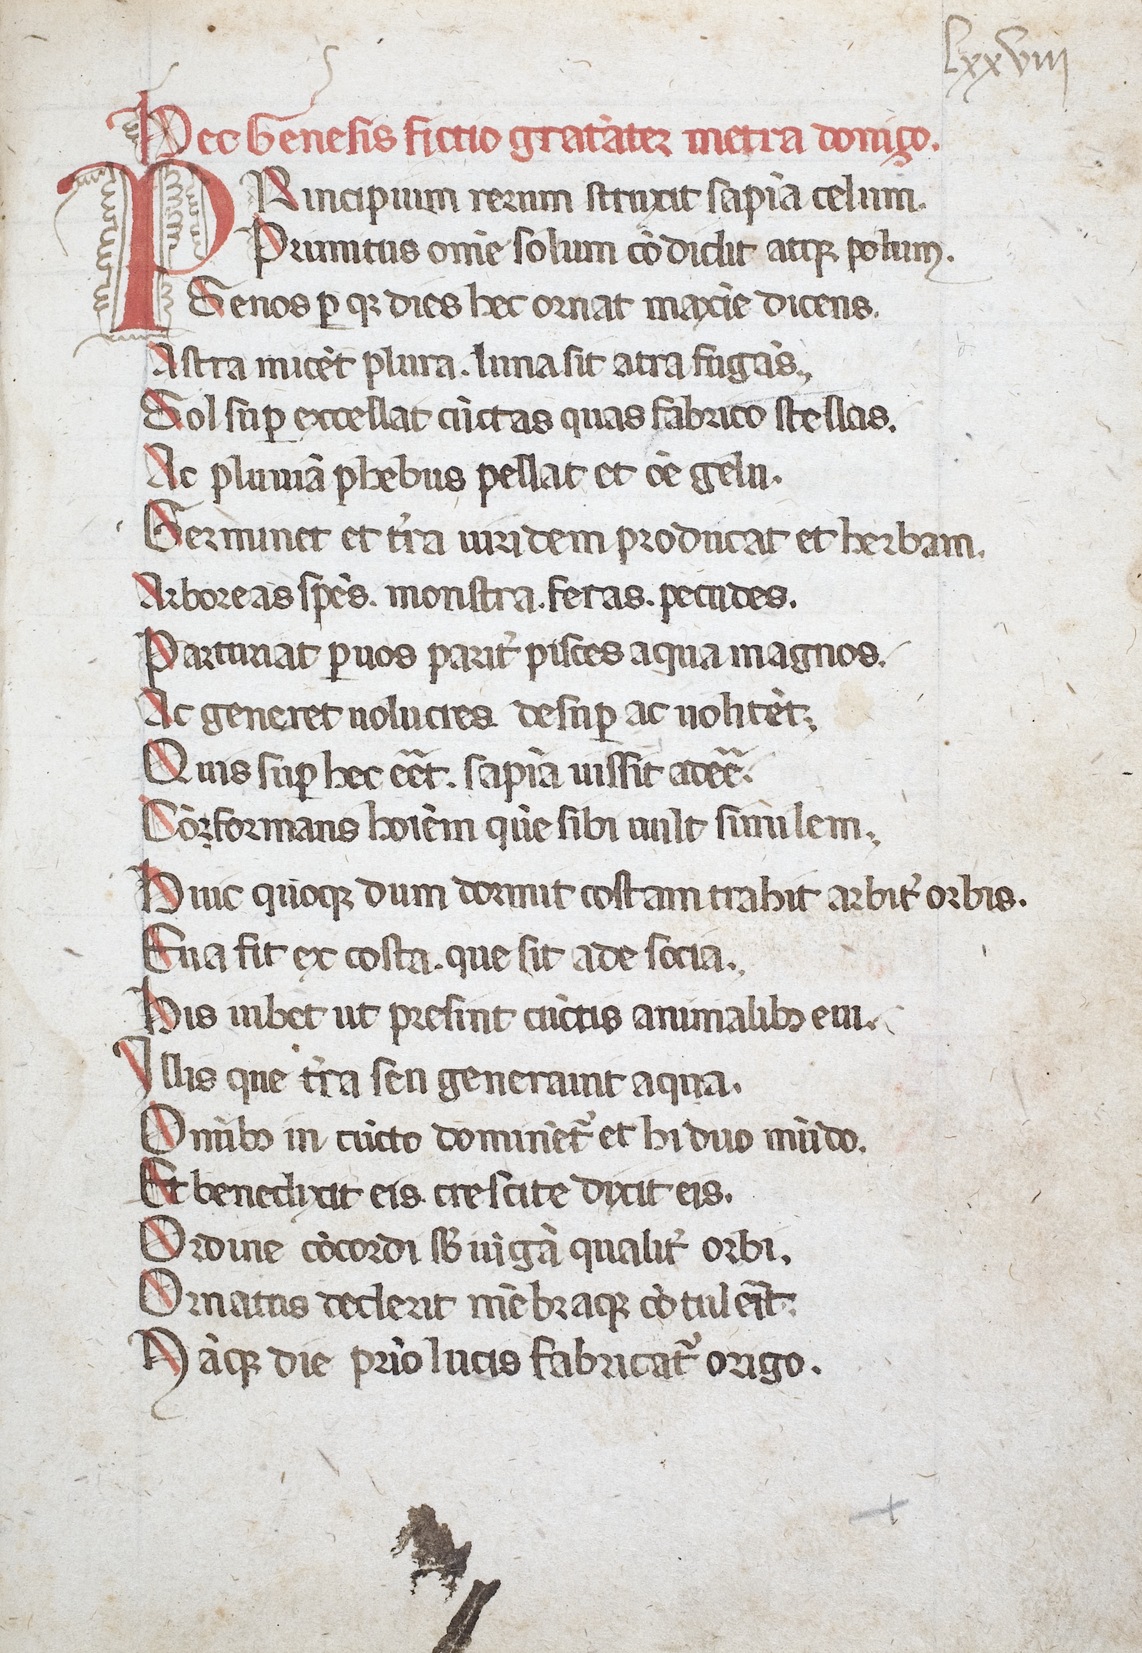 Lxxviii
Hec Genesis fictio grat̃ater metra donigo.
PRincipium rerum struxit sapīa celum.
Primitus om̄e solum cōdidit atqꝫ polum.
Genos ꝑ qꝫ dies hec ornat maxīe dicens.
Astra micēt plura. luna sit atra fugās.
Sol suꝑ excellat cūctas quas fabrico stellas.
Ac pluuiā phebus pellat et ōe gelu.
Germinet et tr̄a uiridem producat et herbam.
Arboreas spēs. monstra. feras. pecudes.
Parturiat ꝑuos parit̾ pisces aqua magnos.
Ac generet uolucres desuꝑ ac uolitēt.
Quis suꝑ hec sapīa uissit
formans hoīēm quē sibi uult similem.
Huic quoqꝫ dum dormit costam trahit arbit̾ orbis.
Eua fit ex costa. que sit ade socia.
His iubet ut presint cūctis animalibꝫ eui.
Illis que tr̄a seu generaūt aqua.
Om̄ibꝫ in cūcto dominēt̾ et hi duo mūdo.
Et benedixit eis crescite dixit eis.
Ordine cōcordi sꝫ uigā qualit̾ orbi.
Ornatus dederit mēbraqꝫ cōtulerit.
Nāqꝫ die prīo lucis fabricat̾ origo.